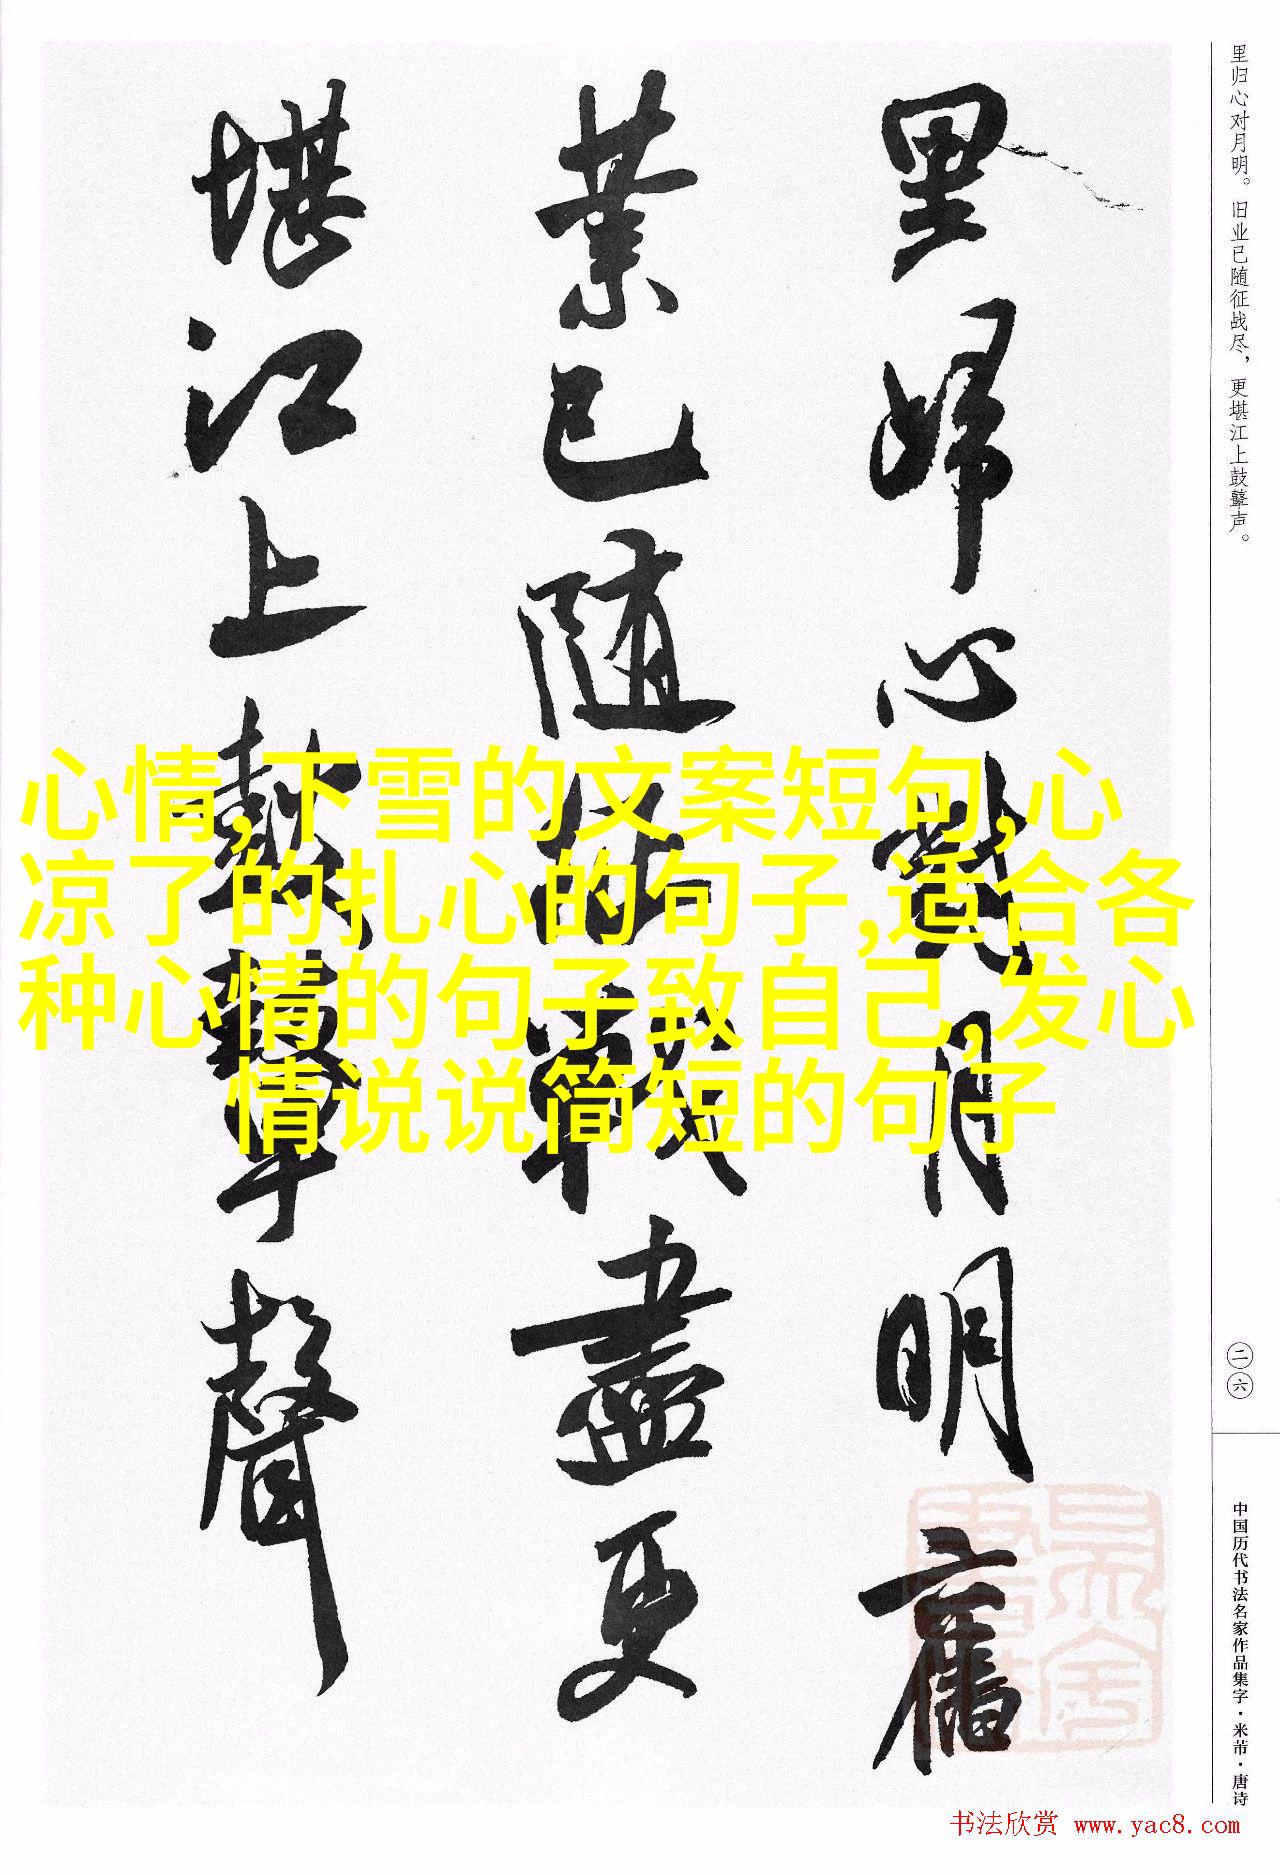 里歸心對月明舊
業已随征戰盡更
堪江上鼓鼙聲
心情,下雪的文案短句,心
凉了的扎心的句子,适合各
种心情的句子致自己,发心
情说说简短的句子
里归心对月明。旧业已随征战尽，更堪江上鼓鼙声。
二六
中国历代书法名家作品集字·米芾·唐诗
书法欣赏 www.yac8.com